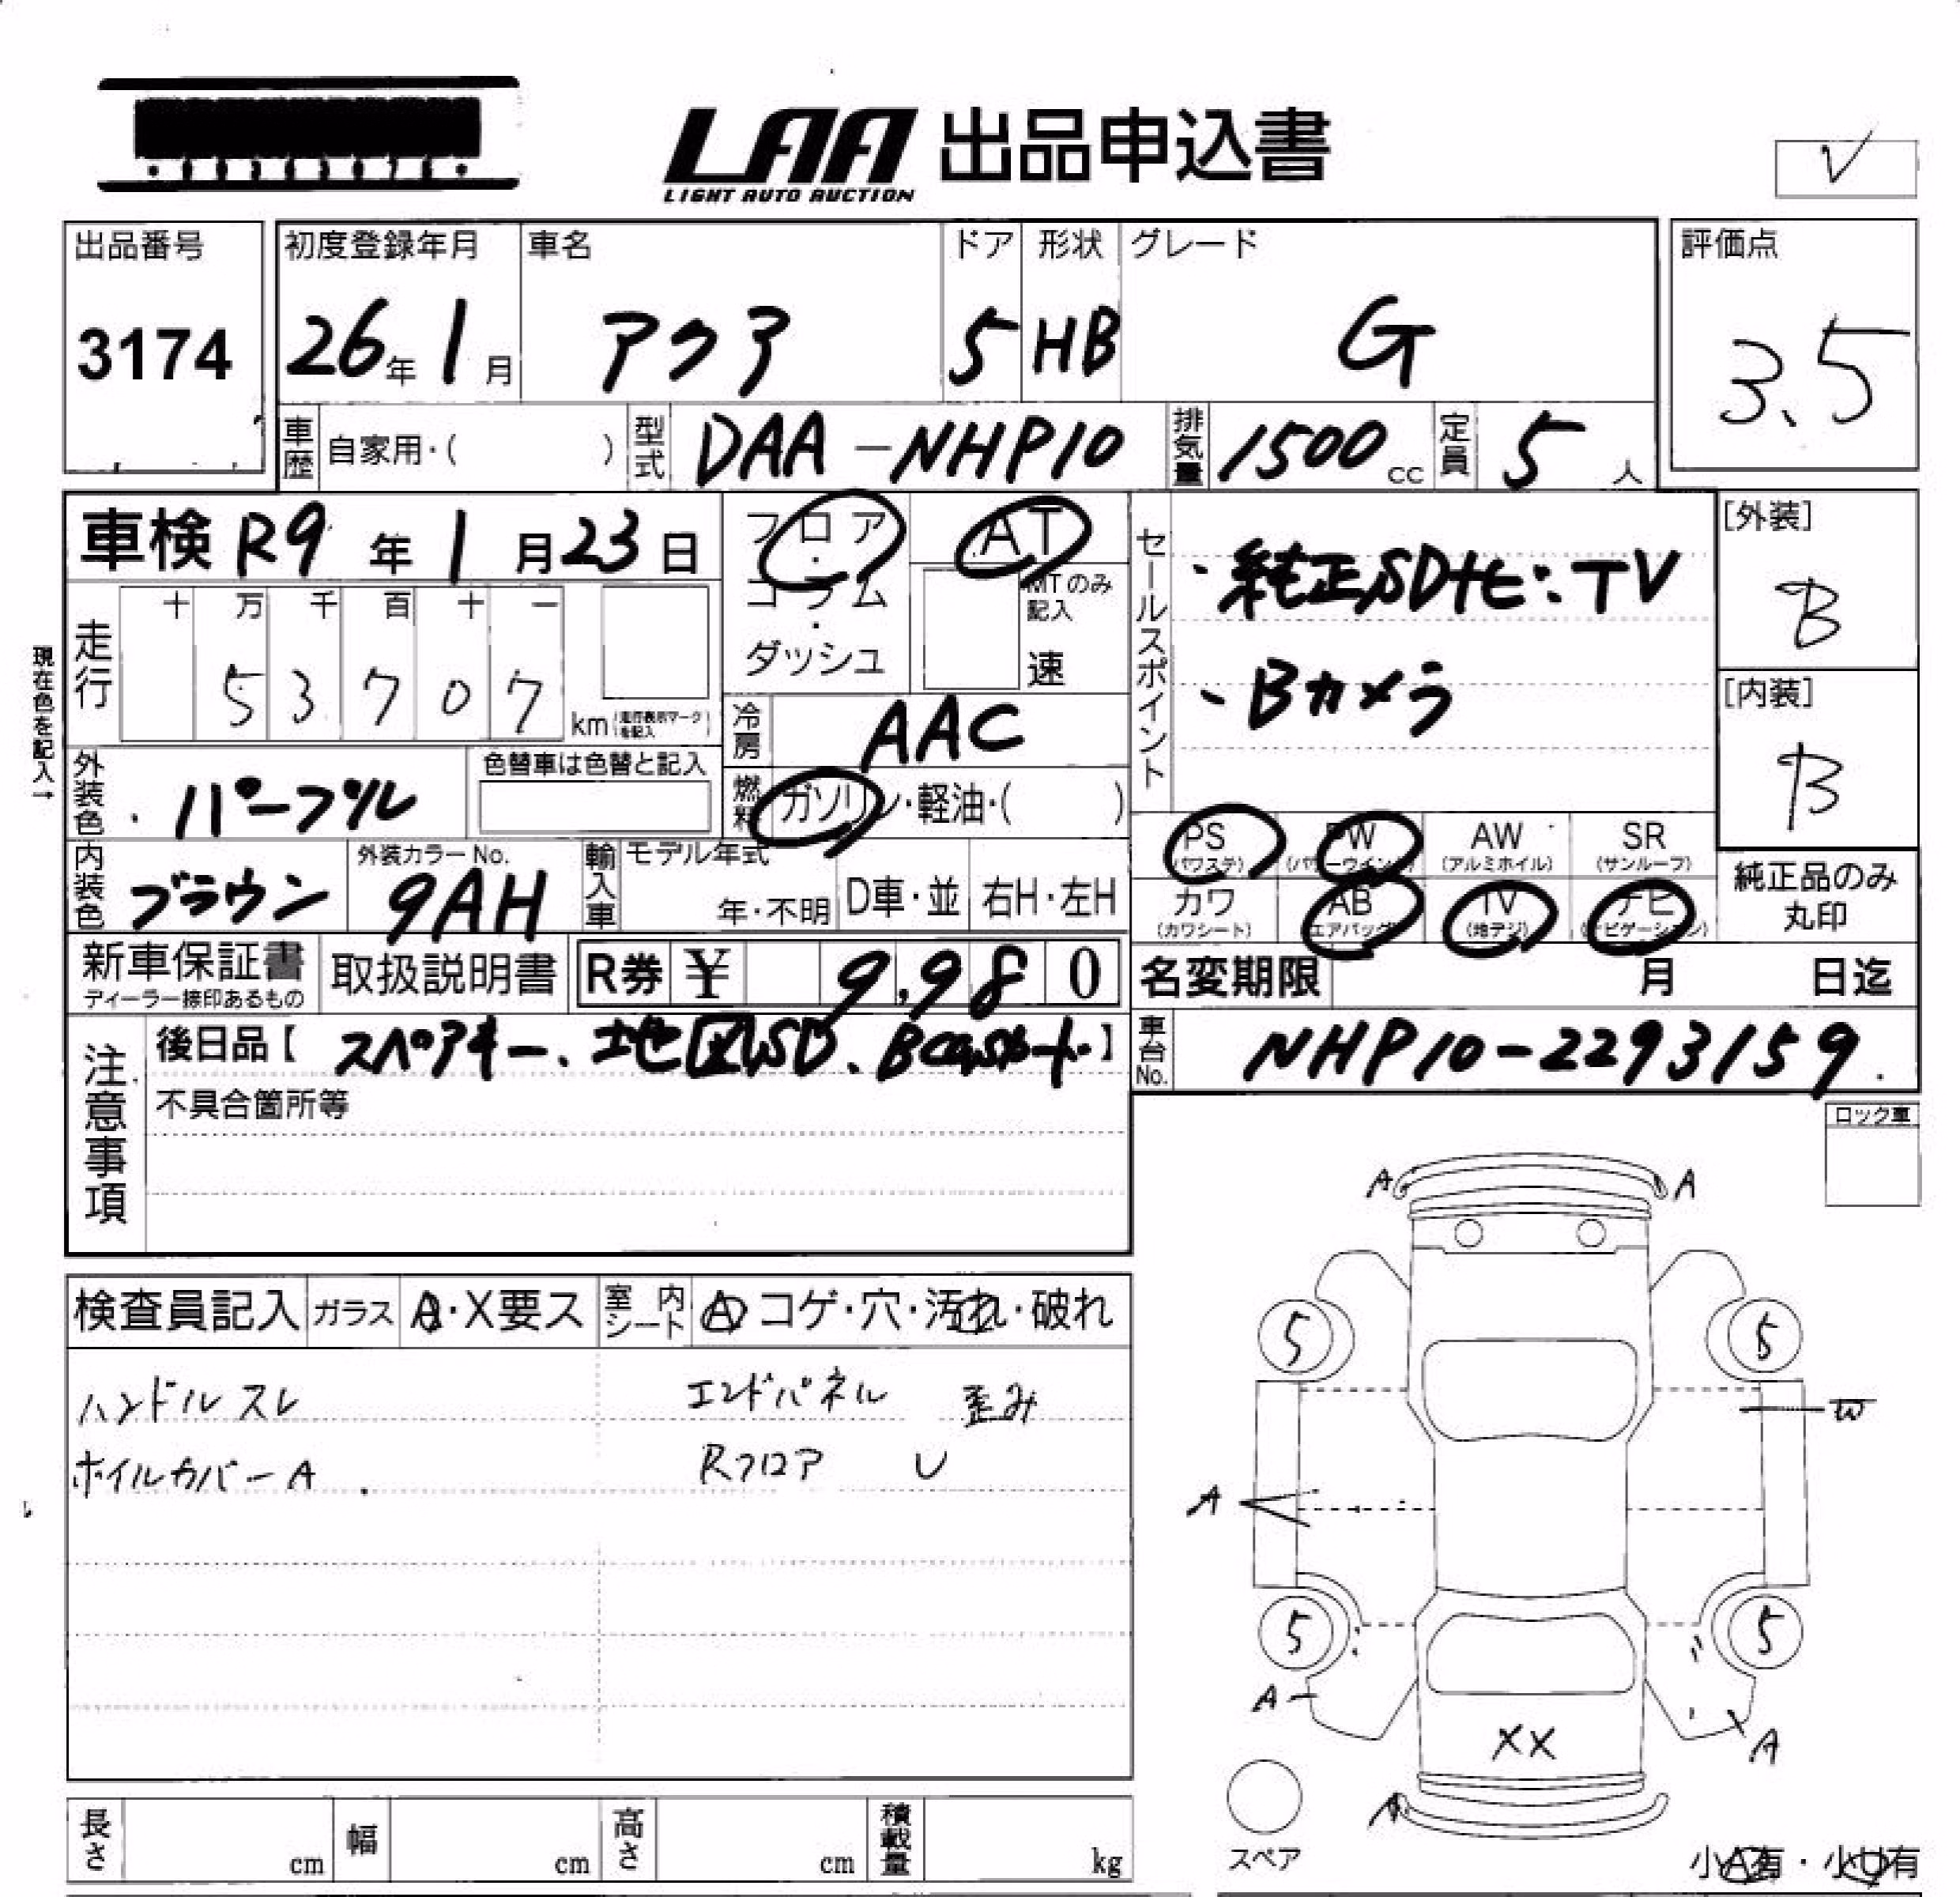 LAA 出品申込書
LIGHT AUTO AUCTION
V
出品番号 初度登録年月 車名 ドア 形状 グレード 評価点
3174 26年 1月 アクア 5 HB G 3.5
車歴 自家用・( ) 型式 DAA-NHP10 排気量 1500cc 定員 5人
車検 R9年 1月23日
フロア・コラム・ダッシュ
AT
MTのみ記入
速
セールスポイント
・純正SDナビ:TV
・Bカメラ
[外装]
B
[内装]
B
現在色を記入→
走行 十 万 千 百 十 一
5 3 7 0 7 km (走行表示マークを記入)
冷房 AAC
外装色 ・パープル 色替車は色替と記入
燃料 ガソリン・軽油・( )
内装色 ブラウン 外装カラーNo. 9AH
輸入車 モデル年式 年・不明 D車・並 右H・左H
PS (パワステ) PW (パワーウインドウ) AW (アルミホイル) SR (サンルーフ)
カワ (カワシート) AB (エアバッグ) TV (地デジ) ナビ (ナビゲーション)
純正品のみ丸印
新車保証書 ディーラー捺印あるもの 取扱説明書 R券 ¥ 9,980
名変期限 月 日迄
注意事項
後日品【スペアキー、地図SD、Bcasカード】
不具合箇所等
車台No. NHP10-2293159
ロック車
検査員記入 ガラス A・X要ス 室内シート A コゲ・穴・汚れ・破れ
ハンドル スレ エンドパネル 歪み
ホイルカバー A Rフロア U
A A
5 5
W
A
5 5
A
XX
A
A
スペア
小A有・小U有
長さ cm 幅 cm 高さ cm 積載量 kg